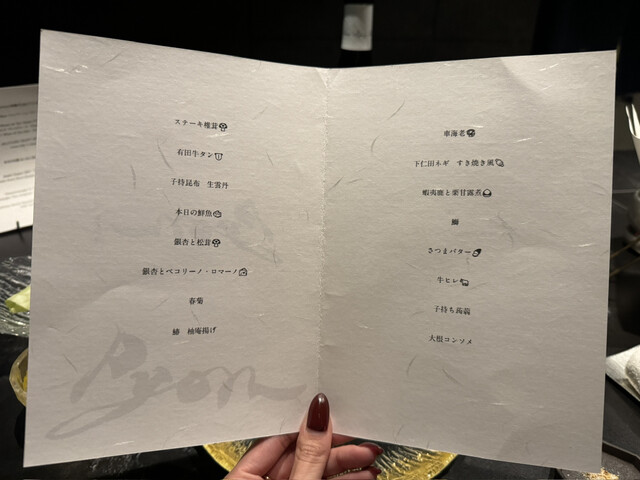 ステーキ椎茸
有田牛タン
子持昆布　生雲丹
本日の鮮魚
銀杏と松茸
銀杏とペコリーノ・ロマーノ
春菊
鰆　柚庵揚げ
Pyon
車海老
下仁田ネギ　すき焼き風
蝦夷鹿と栗甘露煮
鰤
さつまバター
牛ヒレ
子持ち蒟蒻
大根コンソメ